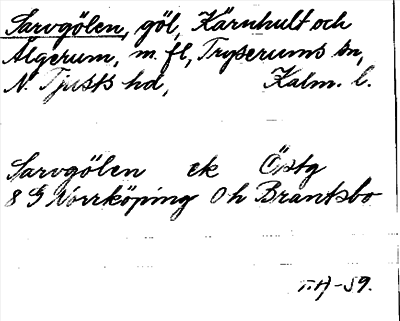 Sarvgölen, göl, Kärnhult och
Älgerum, m. fl, Tryserums sn,
N. Tjusts hd, Kalm. l.
Sarvgölen ek Östg
8 G Norrköping Oh Brantsbo
T.H-59.